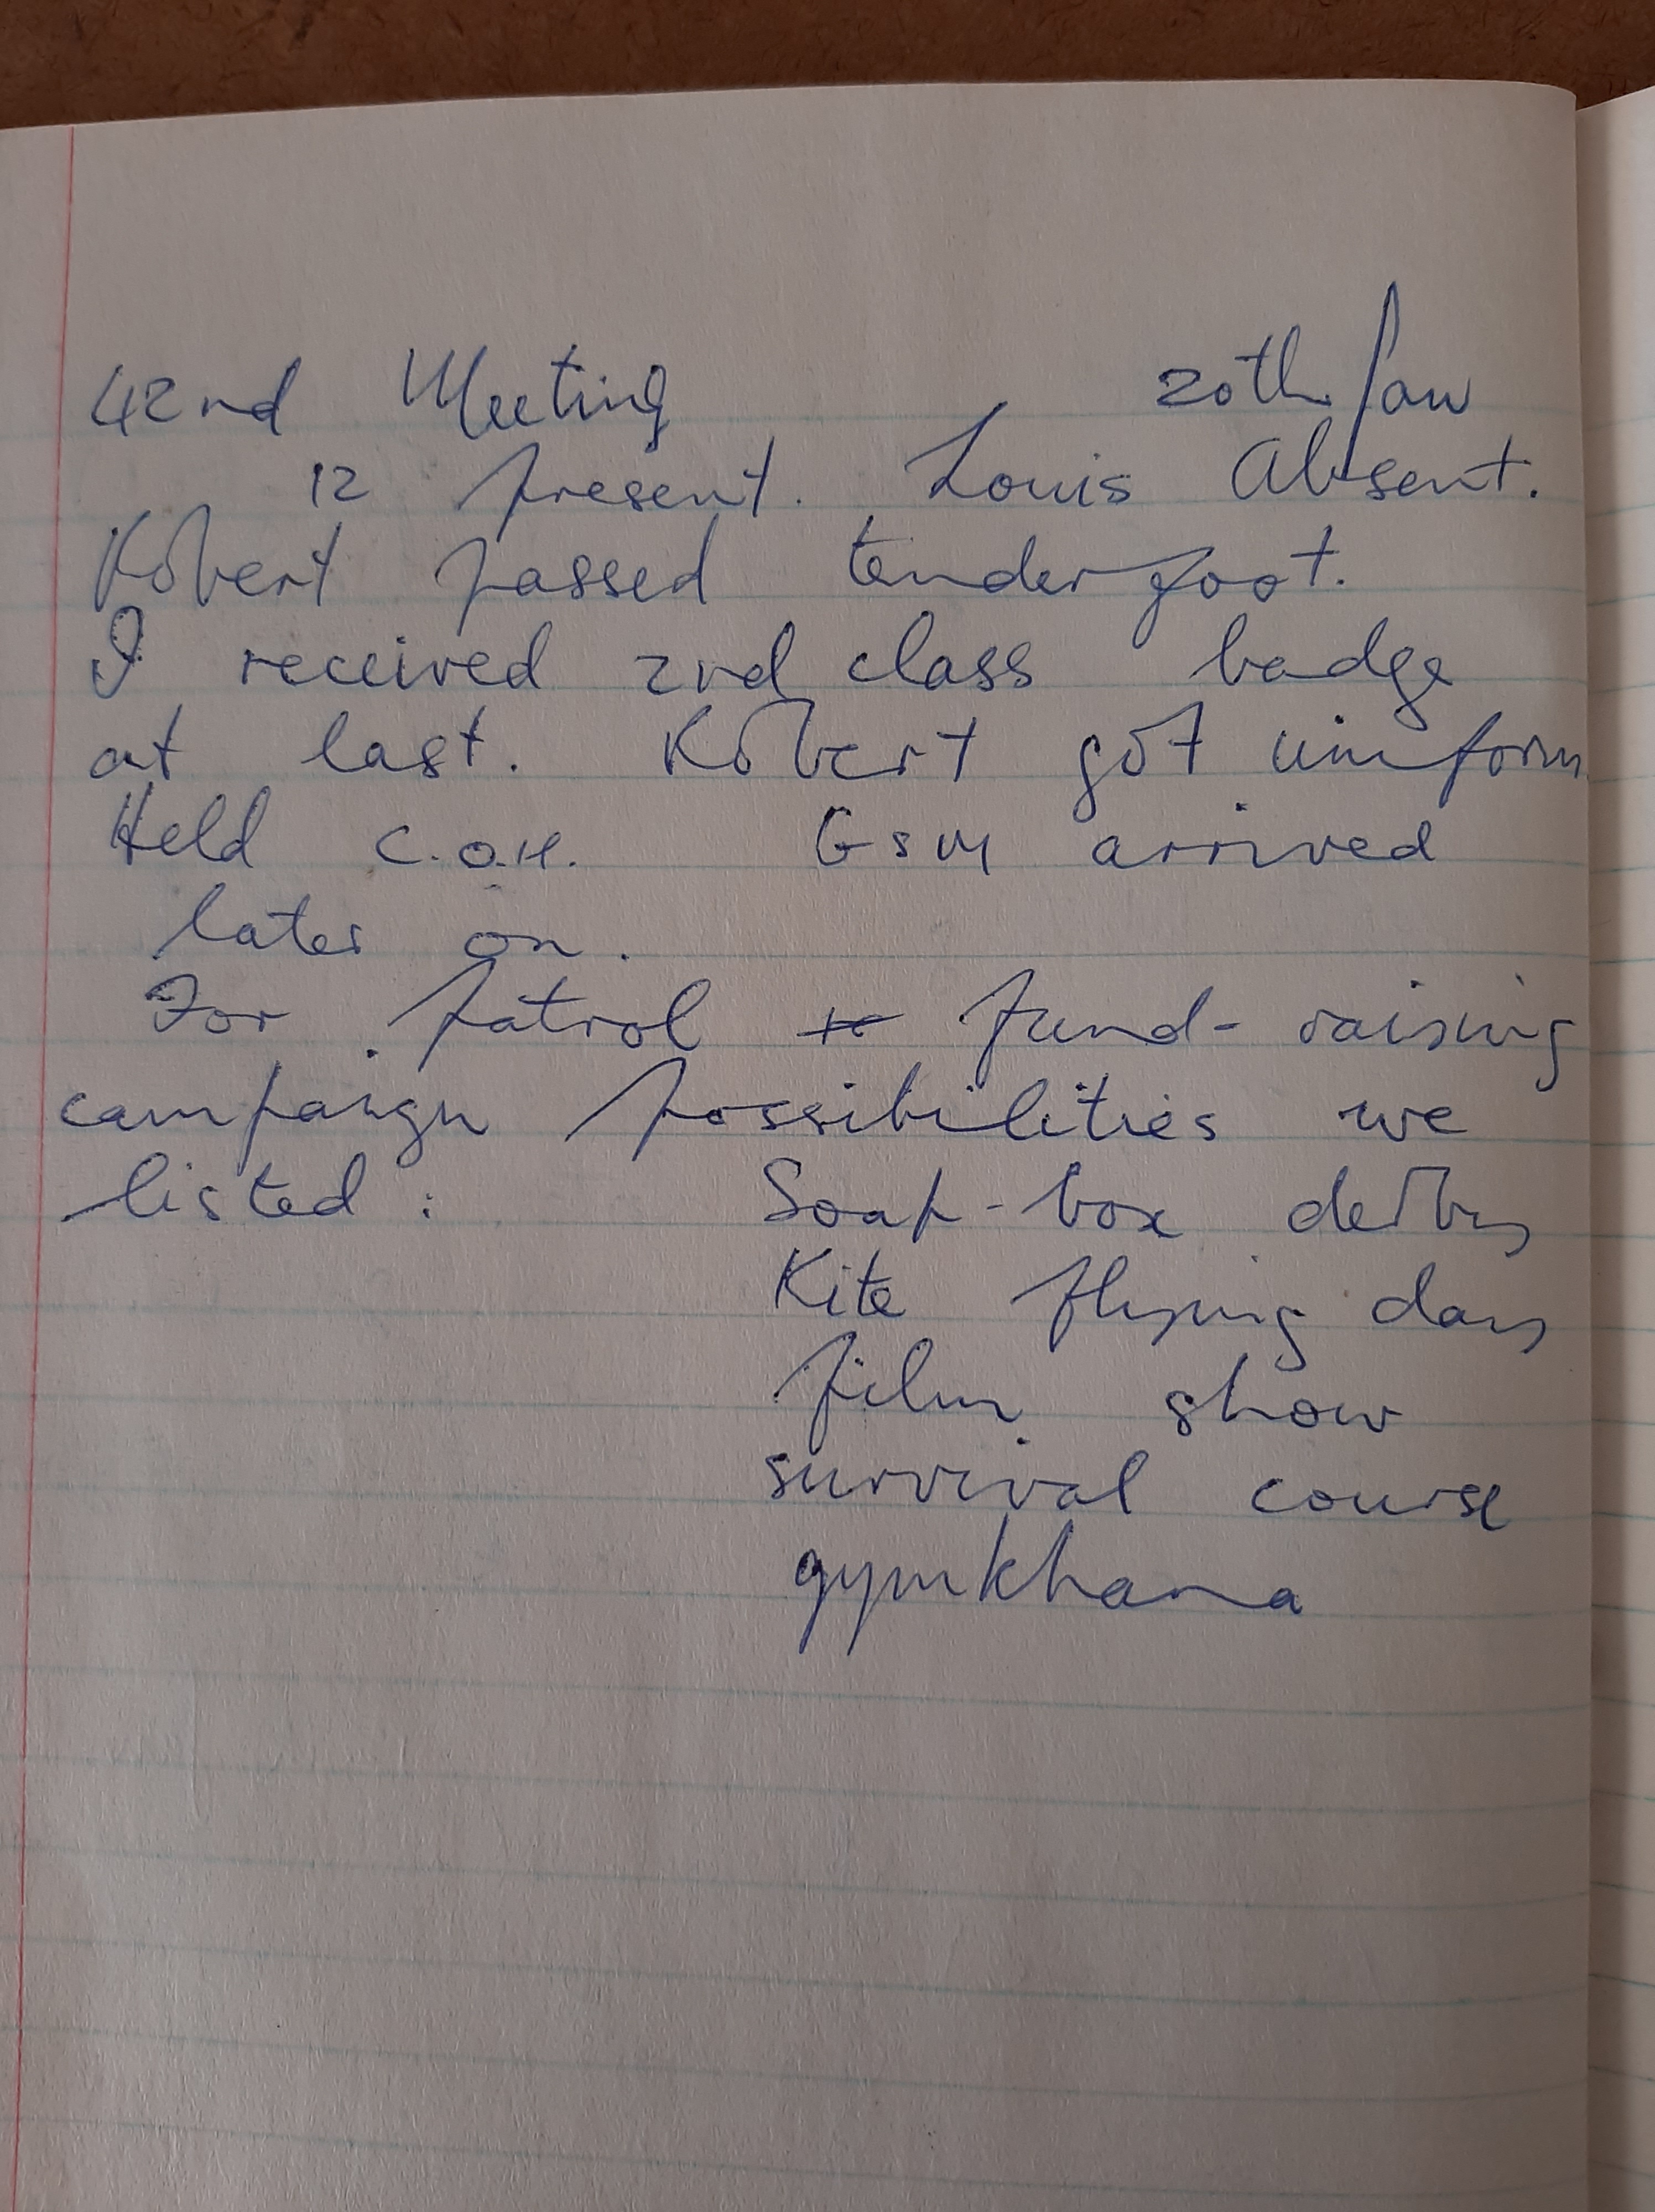 42nd Meeting 20th Jan
12 present. Louis Absent.
Robert passed tenderfoot.
I received 2nd class badge
at last. Robert got uniform
Held C.O.H. GSM arrived
later on.
For patrol fund-raising
campaign possibilities we
listed: Soap-box derby
Kite flying day
film show
survival course
gymkhana